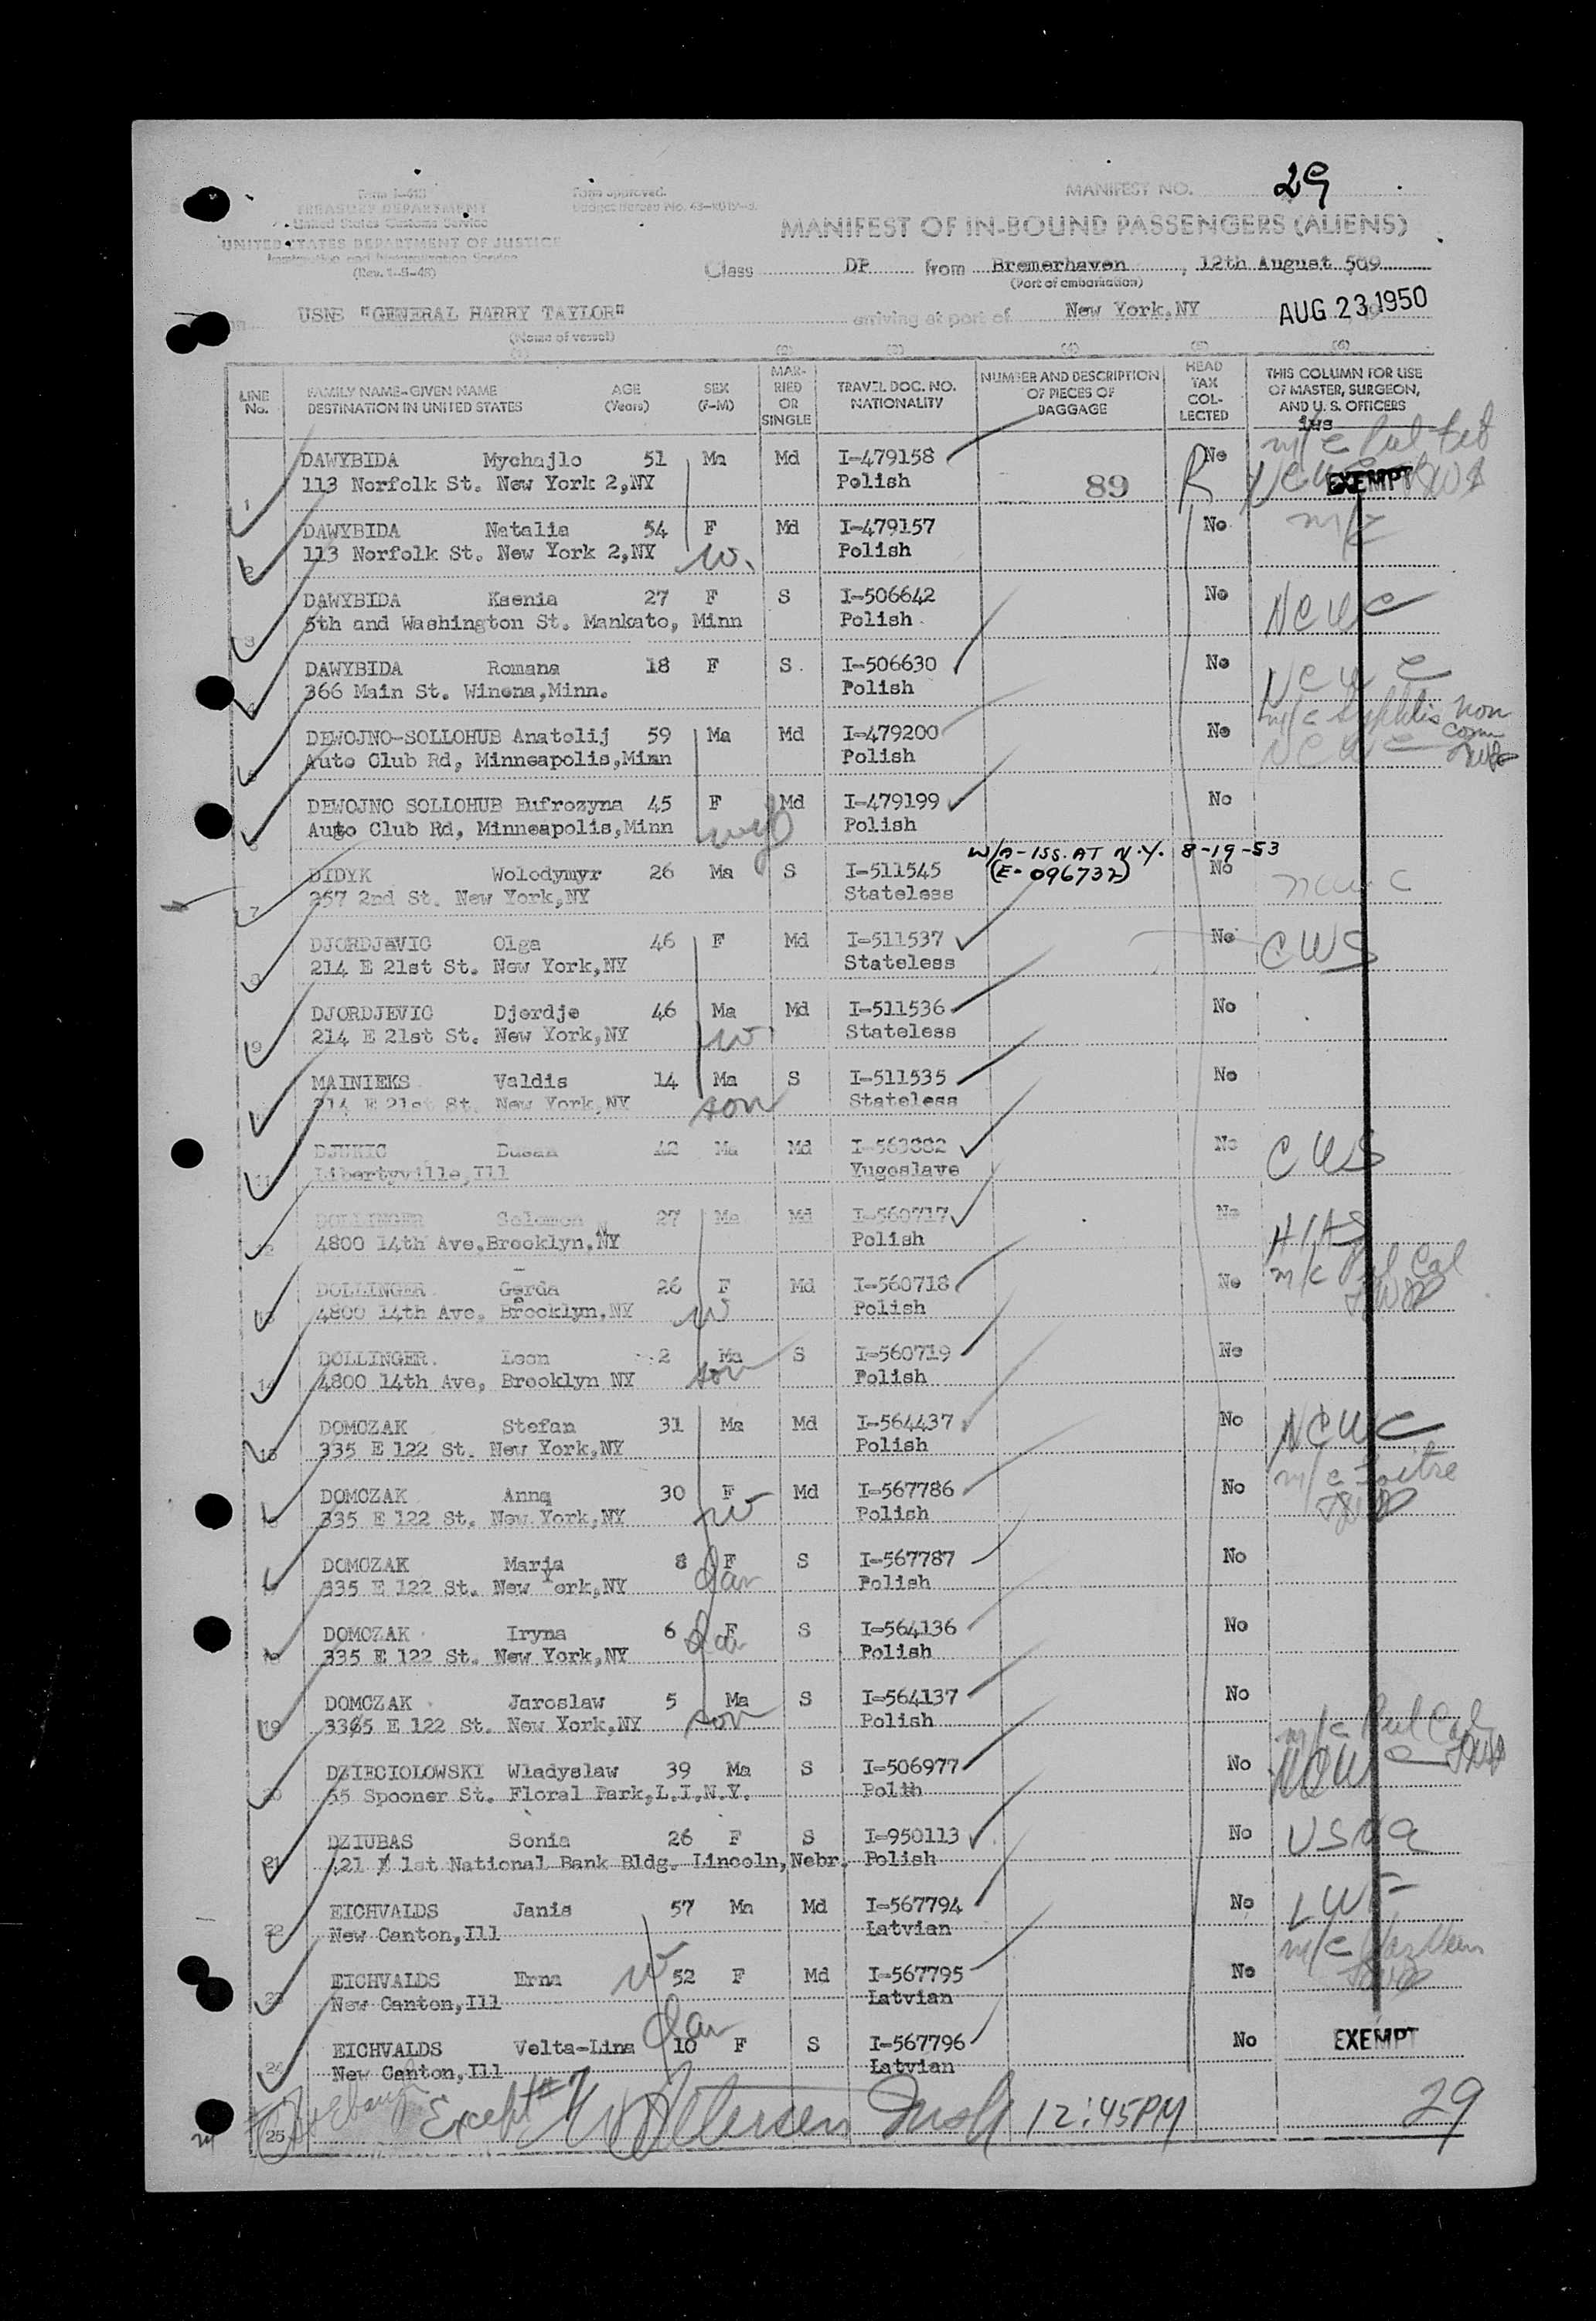 Form I-418
TREASURY DEPARTMENT
United States Customs Service
UNITED STATES DEPARTMENT OF JUSTICE
Immigration and Naturalization Service
(Rev. 1-5-48)
Form approved.
Budget Bureau No. 43-R019-3.
MANIFEST NO. 29
MANIFEST OF IN-BOUND PASSENGERS (ALIENS)
Class DP from Bremerhaven, 12th August 509
(Port of embarkation)
USNS "GENERAL HARRY TAYLOR" arriving at port of New York,NY AUG 23 1950
(Name of vessel)
(1) (2) (3) (4) (5) (6)
LINE No.
FAMILY NAME-GIVEN NAME DESTINATION IN UNITED STATES
AGE (Years)
SEX (F-M)
MAR-RIED OR SINGLE
TRAVEL DOC. NO. NATIONALITY
NUMBER AND DESCRIPTION OF PIECES OF BAGGAGE
HEAD TAX COL-LECTED
THIS COLUMN FOR USE OF MASTER, SURGEON, AND U. S. OFFICERS
DAWYBIDA Mychajlo 51 Ma Md I-479158 No
1 113 Norfolk St. New York 2,NY Polish 89 R EXEMPT
DAWYBIDA Natalia 54 F Md I-479157 No m/c
2 113 Norfolk St. New York 2,NY w. Polish
DAWYBIDA Ksenia 27 F S I-506642 No NCWC
3 5th and Washington St. Mankato, Minn Polish
DAWYBIDA Romana 18 F S I-506630 No NCWC
366 Main St. Winona,Minn. Polish
DEWOJNO-SOLLOHUB Anatolij 59 Ma Md I-479200 No m/c Syphilis non comm
5 Auto Club Rd, Minneapolis,Minn Polish NCWC
DEWOJNO SOLLOHUB Eufrozyna 45 F Md I-479199 No
6 Auto Club Rd, Minneapolis,Minn wif Polish
W/A-ISS. AT N.Y. 8-19-53
DIDYK Wolodymyr 26 Ma S I-511545 (E-096732) No ncwc
7 257 2nd St. New York,NY Stateless
DJORDJEVIC Olga 46 F Md I-511537 No CWS
8 214 E 21st St. New York,NY Stateless
DJORDJEVIC Djordje 46 Ma Md I-511536 No
9 214 E 21st St. New York,NY w Stateless
MAINIEKS Valdis 14 Ma S I-511535 No
214 E 21st St. New York,NY son Stateless
DJUKIC Dusan 42 Ma Md I-563882 No CWS
11 Libertyville,Ill Yugoslave
DOLLINGER Solomon 27 Ma Md I-560717 No HIAS
4800 14th Ave.Brooklyn.NY Polish
DOLLINGER Gerda 26 F Md I-560718 No m/c
13 4800 14th Ave. Brooklyn.NY w Polish
DOLLINGER Leon 2 Ma S I-560719 No
14 4800 14th Ave, Brooklyn NY son Polish
DOMCZAK Stefan 31 Ma Md I-564437 No NCWC
15 335 E 122 St. New York,NY Polish
DOMCZAK Anna 30 F Md I-567786 No m/c Goitre
335 E 122 St. New York,NY w Polish
DOMCZAK Maria 8 F S I-567787 No
335 E 122 St. New York,NY dau Polish
DOMCZAK Iryna 6 F S I-564136 No
335 E 122 St. New York,NY da Polish
DOMCZAK Jaroslaw 5 Ma S I-564137 No
19 3365 E 122 St. New York,NY son Polish
DZIECIOLOWSKI Wladyslaw 39 Ma S I-506977 No
20 55 Spooner St. Floral Park,L.I.N.Y. Polih
DZIUBAS Sonia 26 F S I-950113 No USNA
21 121 1st National Bank Bldg. Lincoln,Nebr. Polish
EICHVALDS Janis 57 Ma Md I-567794 No LWF
22 New Canton,Ill Latvian
EICHVALDS Erna w 52 F Md I-567795 No m/c
23 New Canton,Ill Latvian
EICHVALDS Velta-Lina dau 10 F S I-567796 No EXEMPT
24 New Canton,Ill Latvian
25 Except #7 12:45PM 29